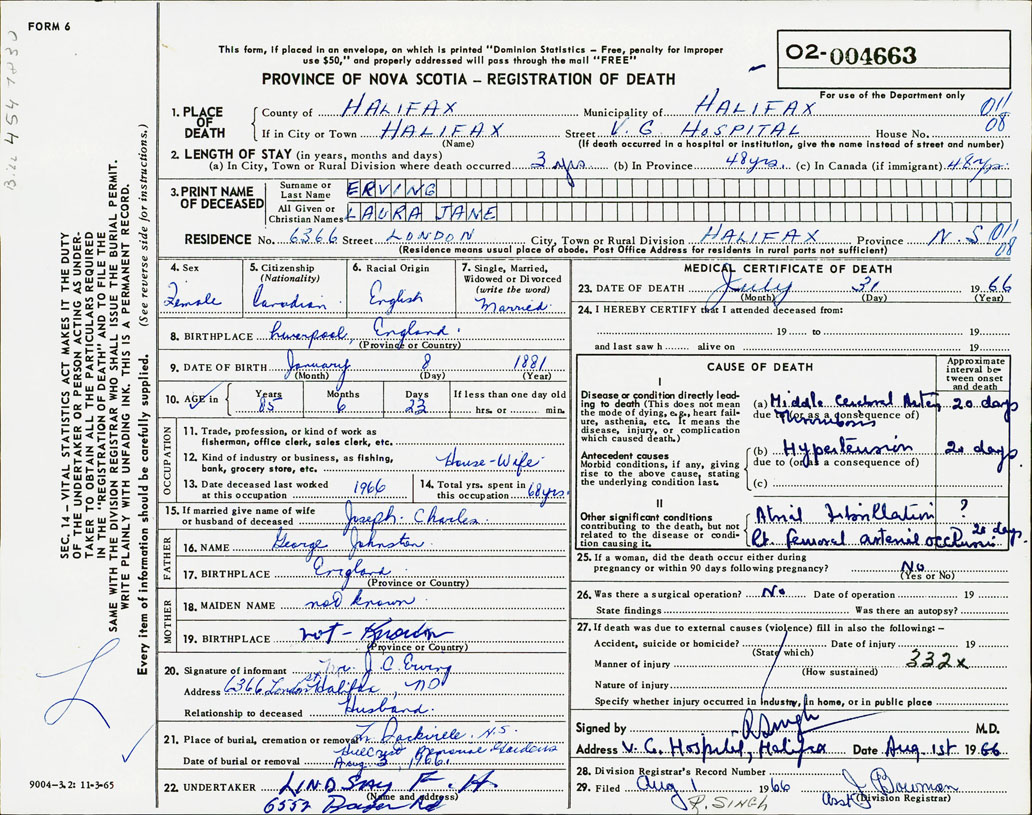 FORM 6
B.ll 454 7830
This form, if placed in an envelope, on which is printed "Dominion Statistics – Free, penalty for improper
use $50," and properly addressed will pass through the mail "FREE"
PROVINCE OF NOVA SCOTIA – REGISTRATION OF DEATH
02-004663
For use of the Department only
1. PLACE OF DEATH
County of HALIFAX Municipality of HALIFAX 011
If in City or Town HALIFAX Street V. G. HOSPITAL House No. 08
(Name) (If death occurred in a hospital or institution, give the name instead of street and number)
2. LENGTH OF STAY (in years, months and days)
(a) In City, Town or Rural Division where death occurred 3 yrs (b) In Province 48 yrs. (c) In Canada (if immigrant) 48 yrs.
3. PRINT NAME OF DECEASED
Surname or Last Name ERVING
All Given or Christian Names LAURA JANE
RESIDENCE No. 6366 Street LONDON City, Town or Rural Division HALIFAX Province N.S 011
08
(Residence means usual place of abode. Post Office Address for residents in rural parts not sufficient)
4. Sex
Female
5. Citizenship
(Nationality)
Canadian
6. Racial Origin
English
7. Single, Married,
Widowed or Divorced
(write the word)
Married
8. BIRTHPLACE Liverpool, England.
(Province or Country)
9. DATE OF BIRTH January 8 1881
(Month) (Day) (Year)
10. AGE in
Years Months Days If less than one day old
85 6 23 hrs. or min.
OCCUPATION
11. Trade, profession, or kind of work as
fisherman, office clerk, sales clerk, etc.
12. Kind of industry or business, as fishing,
bank, grocery store, etc. House-Wife
13. Date deceased last worked
at this occupation 1966
14. Total yrs. spent in
this occupation 68 yrs.
15. If married give name of wife
or husband of deceased Joseph Charles
FATHER
16. NAME George Johnston
17. BIRTHPLACE England
(Province or Country)
MOTHER
18. MAIDEN NAME not known
19. BIRTHPLACE not - Known
(Province or Country)
20. Signature of informant Mr. J. C. Erving
Address 6366 London St Halifax, NS
Relationship to deceased Husband.
21. Place of burial, cremation or removal L. Sackville N.S.
Hillcrest Memorial Gardens
Date of burial or removal Aug 3, 1966
22. UNDERTAKER LINDSAY F. H.
(Name and address)
MEDICAL CERTIFICATE OF DEATH
23. DATE OF DEATH July 31 1966
(Month) (Day) (Year)
24. I HEREBY CERTIFY that I attended deceased from:
19 to 19
and last saw h alive on 19
CAUSE OF DEATH
Approximate
interval be-
tween onset
and death
I
Disease or condition directly lead-
ing to death (This does not mean
the mode of dying, e.g., heart fail-
ure, asthenia, etc. It means the
disease, injury, or complication
which caused death.)
(a) Middle Cerebral Artery 20 days
due to (or as a consequence of)
Thrombosis
Antecedent causes
Morbid conditions, if any, giving
rise to the above cause, stating
the underlying condition last.
(b) Hypertension 20 days
due to (or as a consequence of)
(c)
II
Other significant conditions
contributing to the death, but not
related to the disease or condi-
tion causing it.
Atrial Fibrillation ?
Rt. femoral arterial occlusion 20 days
25. If a woman, did the death occur either during
pregnancy or within 90 days following pregnancy? No
(Yes or No)
26. Was there a surgical operation? No Date of operation 19
State findings Was there an autopsy?
27. If death was due to external causes (violence) fill in also the following:–
Accident, suicide or homicide? Date of injury 19
(State which)
Manner of injury 332x
(How sustained)
Nature of injury
Specify whether injury occurred in industry, in home, or in public place
Signed by R Singh M.D.
Address V. G. Hospital, Halifax Date Aug. 1st 1966
28. Division Registrar's Record Number
29. Filed Aug 1 1966 J. Bowman
Asst (Division Registrar)
R. SINGH
SEC. 14 – VITAL STATISTICS ACT MAKES IT THE DUTY
OF THE UNDERTAKER OR PERSON ACTING AS UNDER-
TAKER TO OBTAIN ALL THE PARTICULARS REQUIRED
IN THE "REGISTRATION OF DEATH" AND TO FILE THE
SAME WITH THE DIVISION REGISTRAR WHO SHALL ISSUE THE BURIAL PERMIT.
WRITE PLAINLY WITH UNFADING INK. THIS IS A PERMANENT RECORD.
Every item of information should be carefully supplied. (See reverse side for instructions.)
9004–3.2: 11-3-65